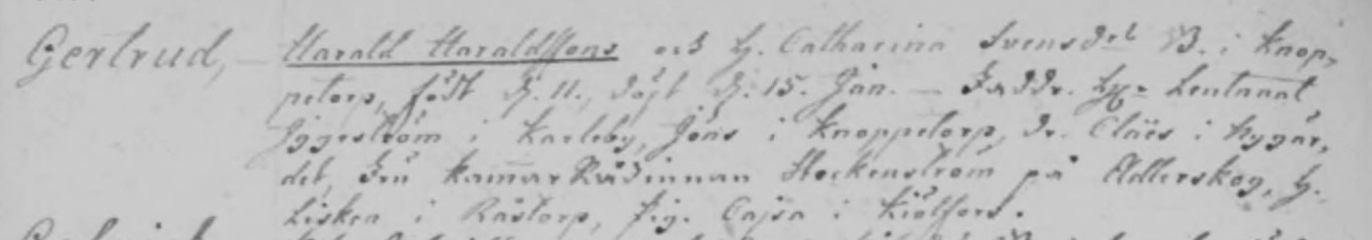 Gertrud, — Harald Haraldssons och H. Catharina Svensdet B. i Knop,
petorp, född d. 11., döpt d. 15. Jan. — Faddr. Hr. Leutnant
Iggeström i Karleby, Jöns i Knoppetorp, Dr. Claes i Nygär,
det, Fru KamarRådinnan Stockenström på Adlerskog, H.
Lisken i Råstorp, Pig. Cajsa i